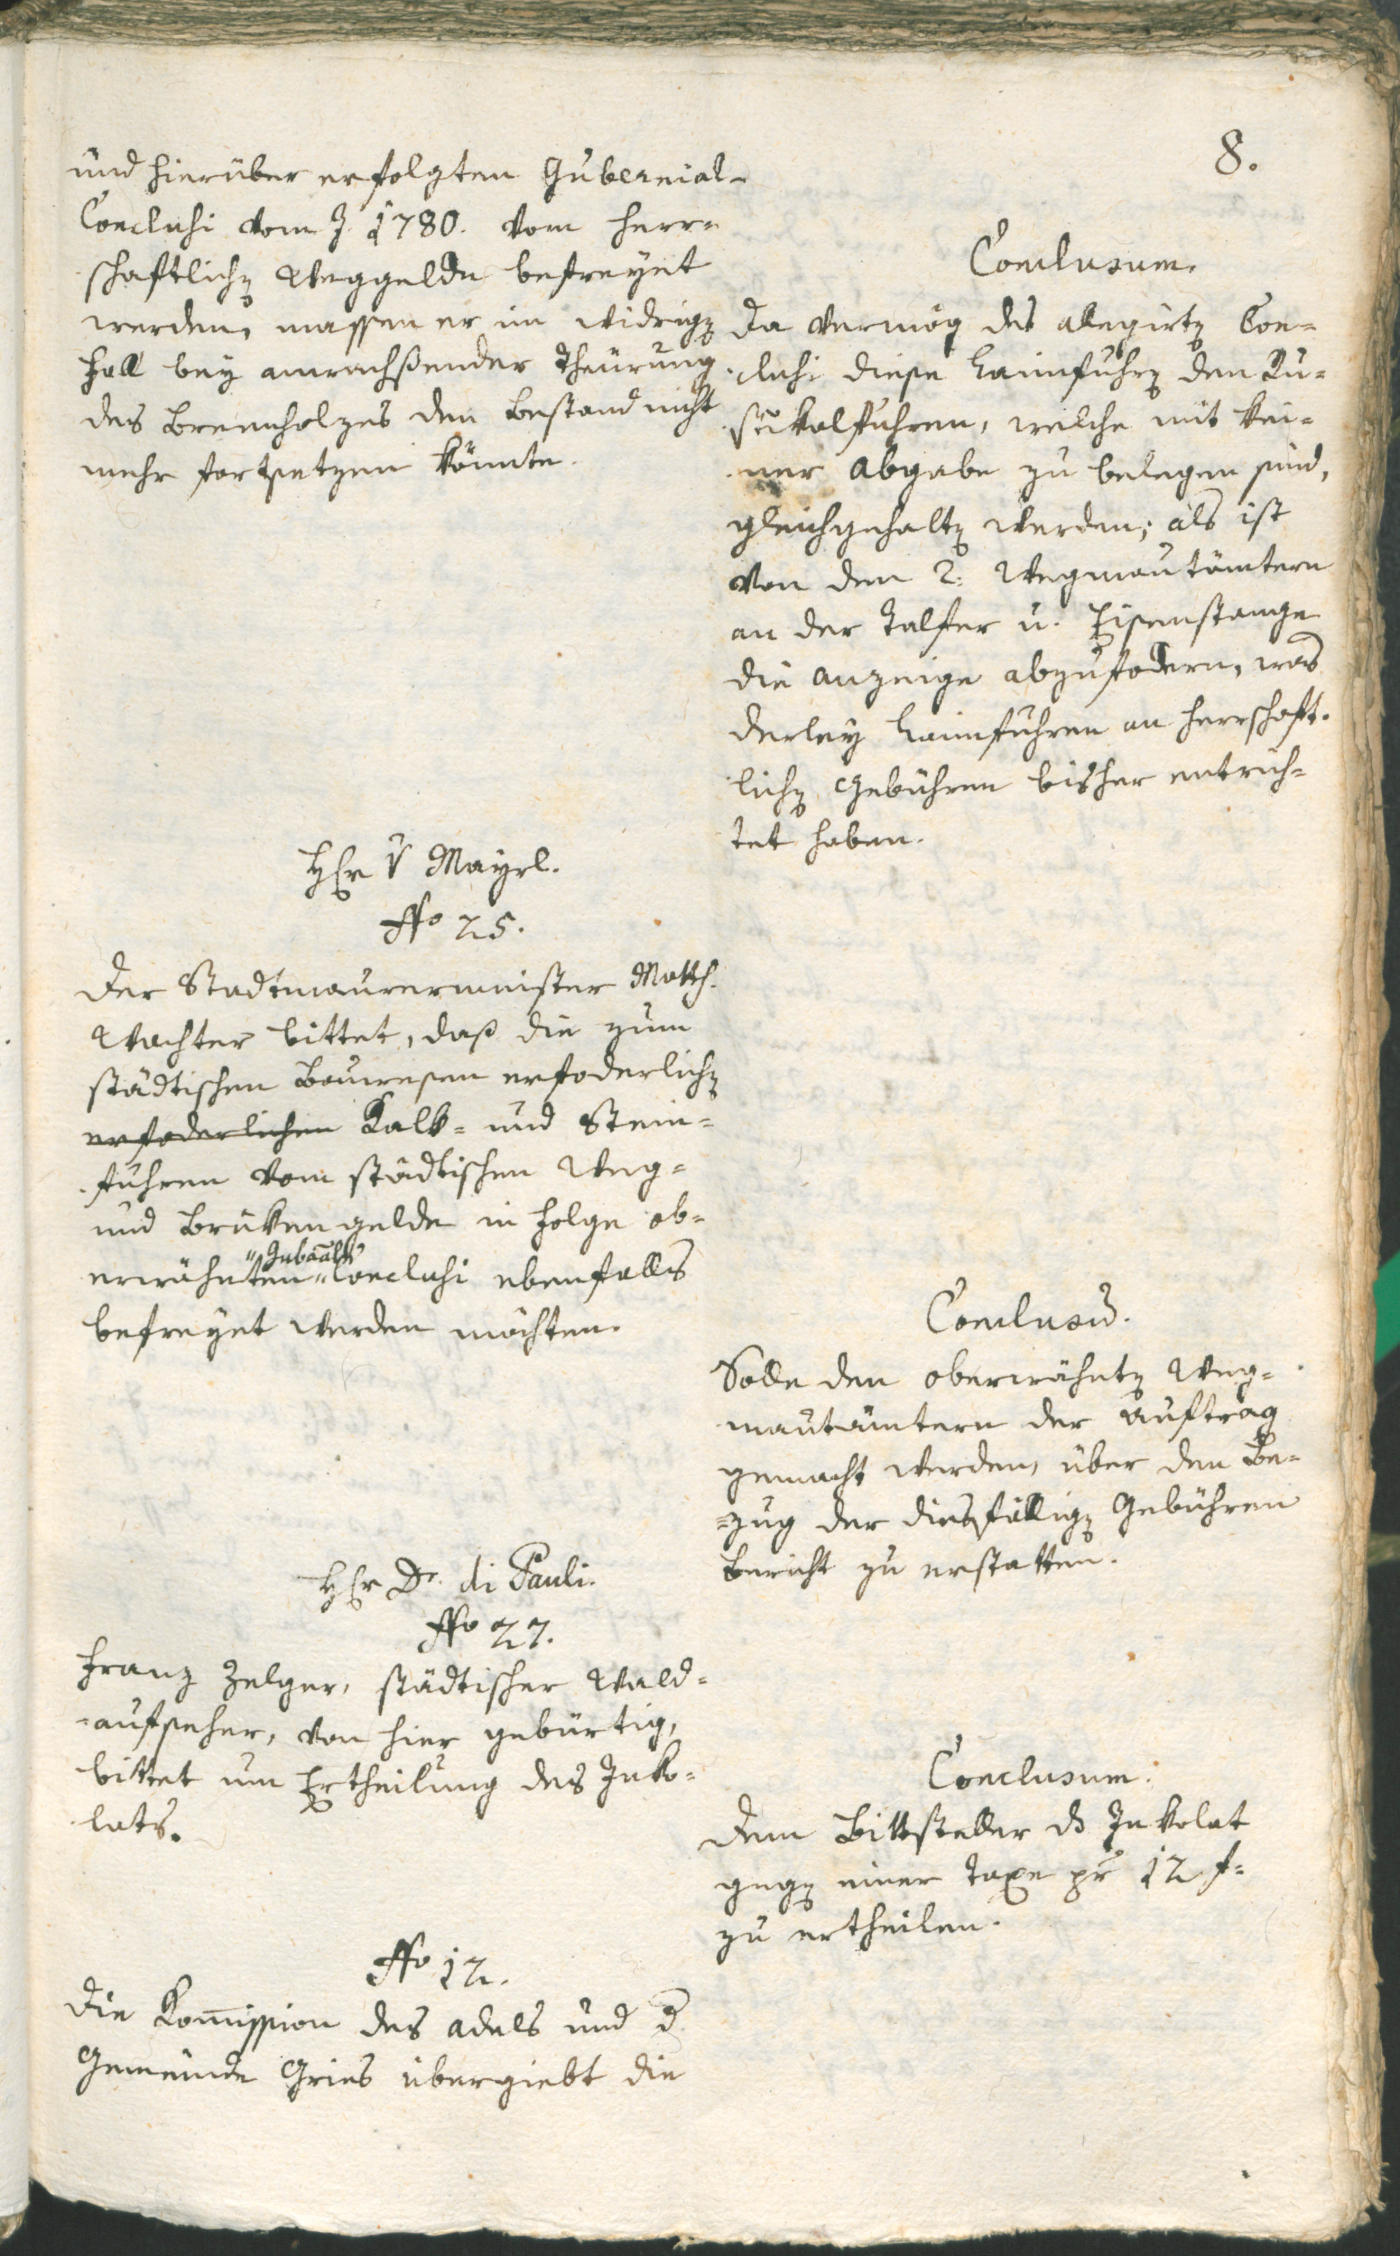 8.
und hierüber erfolgten Gubernial-
Conclusi vom J. 1780. vom herr-
schaftlichen Weggelde befreyet
werden, massen er im widrigen
Fall bey anwachßender Theürung
des Brennholzes den Bestand nicht
mehr fortsetzen könnte.
Conclusum.
Da vermög des allegirten Con-
clusi diese Laimfuhren den Ru-
stikalfuhren, welche mit kei-
ner Abgabe zu belegen sind,
gleichgehalten werden; als ist
von den 2. Wegmautämtern
an der Talfer u. Eisenstange
die Anzeige abzufodern, was
derley Laimfuhren an herrschaft-
lichen Gebühren bisher entrich-
tet haben.
Herr v Mayrl.
No 25.
Der Stadtmaurermeister Matth.
Wachter bittet, daß die zum
städtischen Bauwesen erfoderlichen
erfoderlichen Kalk- und Stein-
fuhren vom städtischen Weg-
und Brükengelde in Folge ob-
erwähnten Gubaals Conclusi ebenfalls
befreyet werden möchten.
Conclusum.
Solle den oberwähnten Weg-
mautämtern der Auftrag
gemacht werden, über den Be-
zug der diesfälligen Gebühren
Bericht zu erstatten.
Herr Dr. di Pauli.
No 27.
Franz Zelger, städtischer Wald-
aufseher, von hier gebürtig,
bittet um Ertheilung des Inko-
lats.
Conclusum.
Dem Bittsteller ds Inkolat
gegen einer Taxe pr 12 f.
zu ertheilen.
No 12.
Die Kommission des Adels und der
Gemeinde Gries übergiebt die